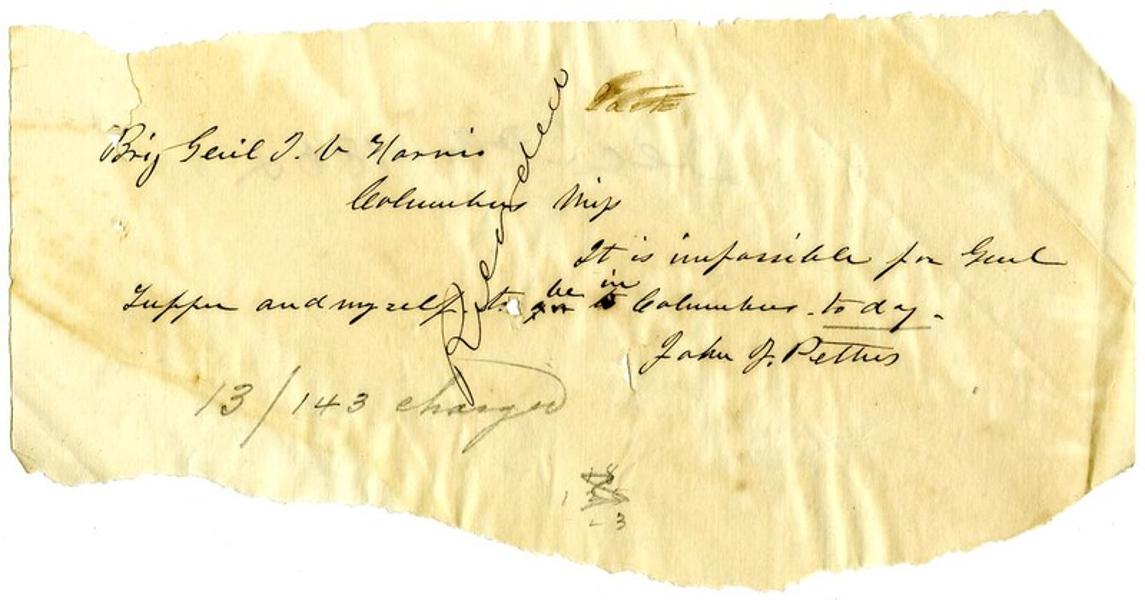 Brig Genl J. V Harris
Columbus Miss
It is impossible for Genl
Tupper and myself to be in Columbus to day.
John J. Pettus
13/143 charged